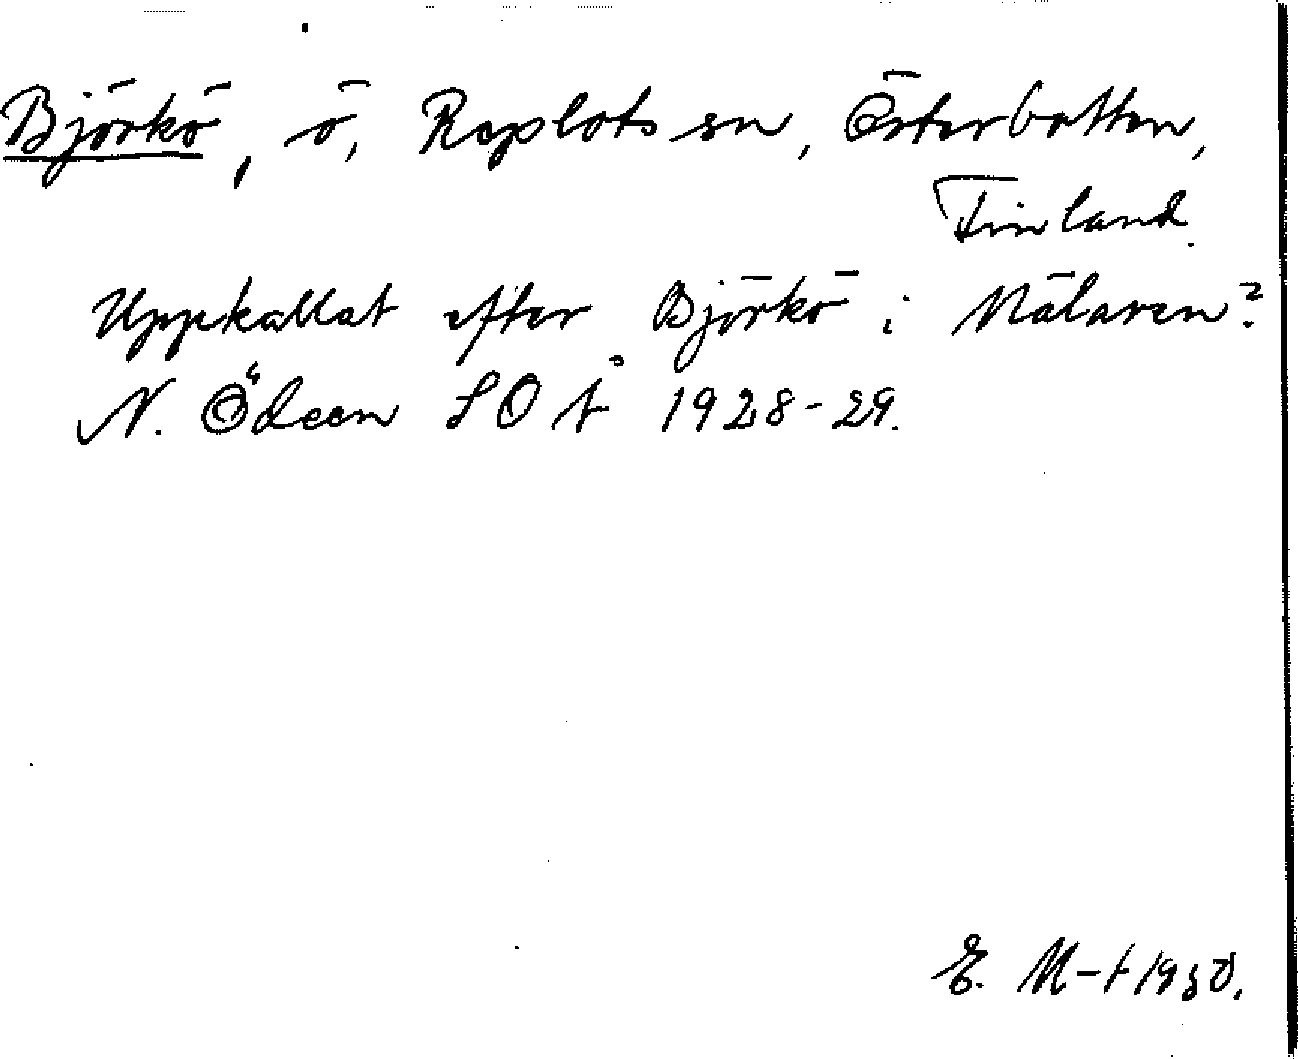 Björkö, ö, Replots sn, Österbotten,
Finland.
Uppkallat efter Björkö i Mälaren?
N. Ödeen SOÅ 1928-29.
E. M-t 1930.